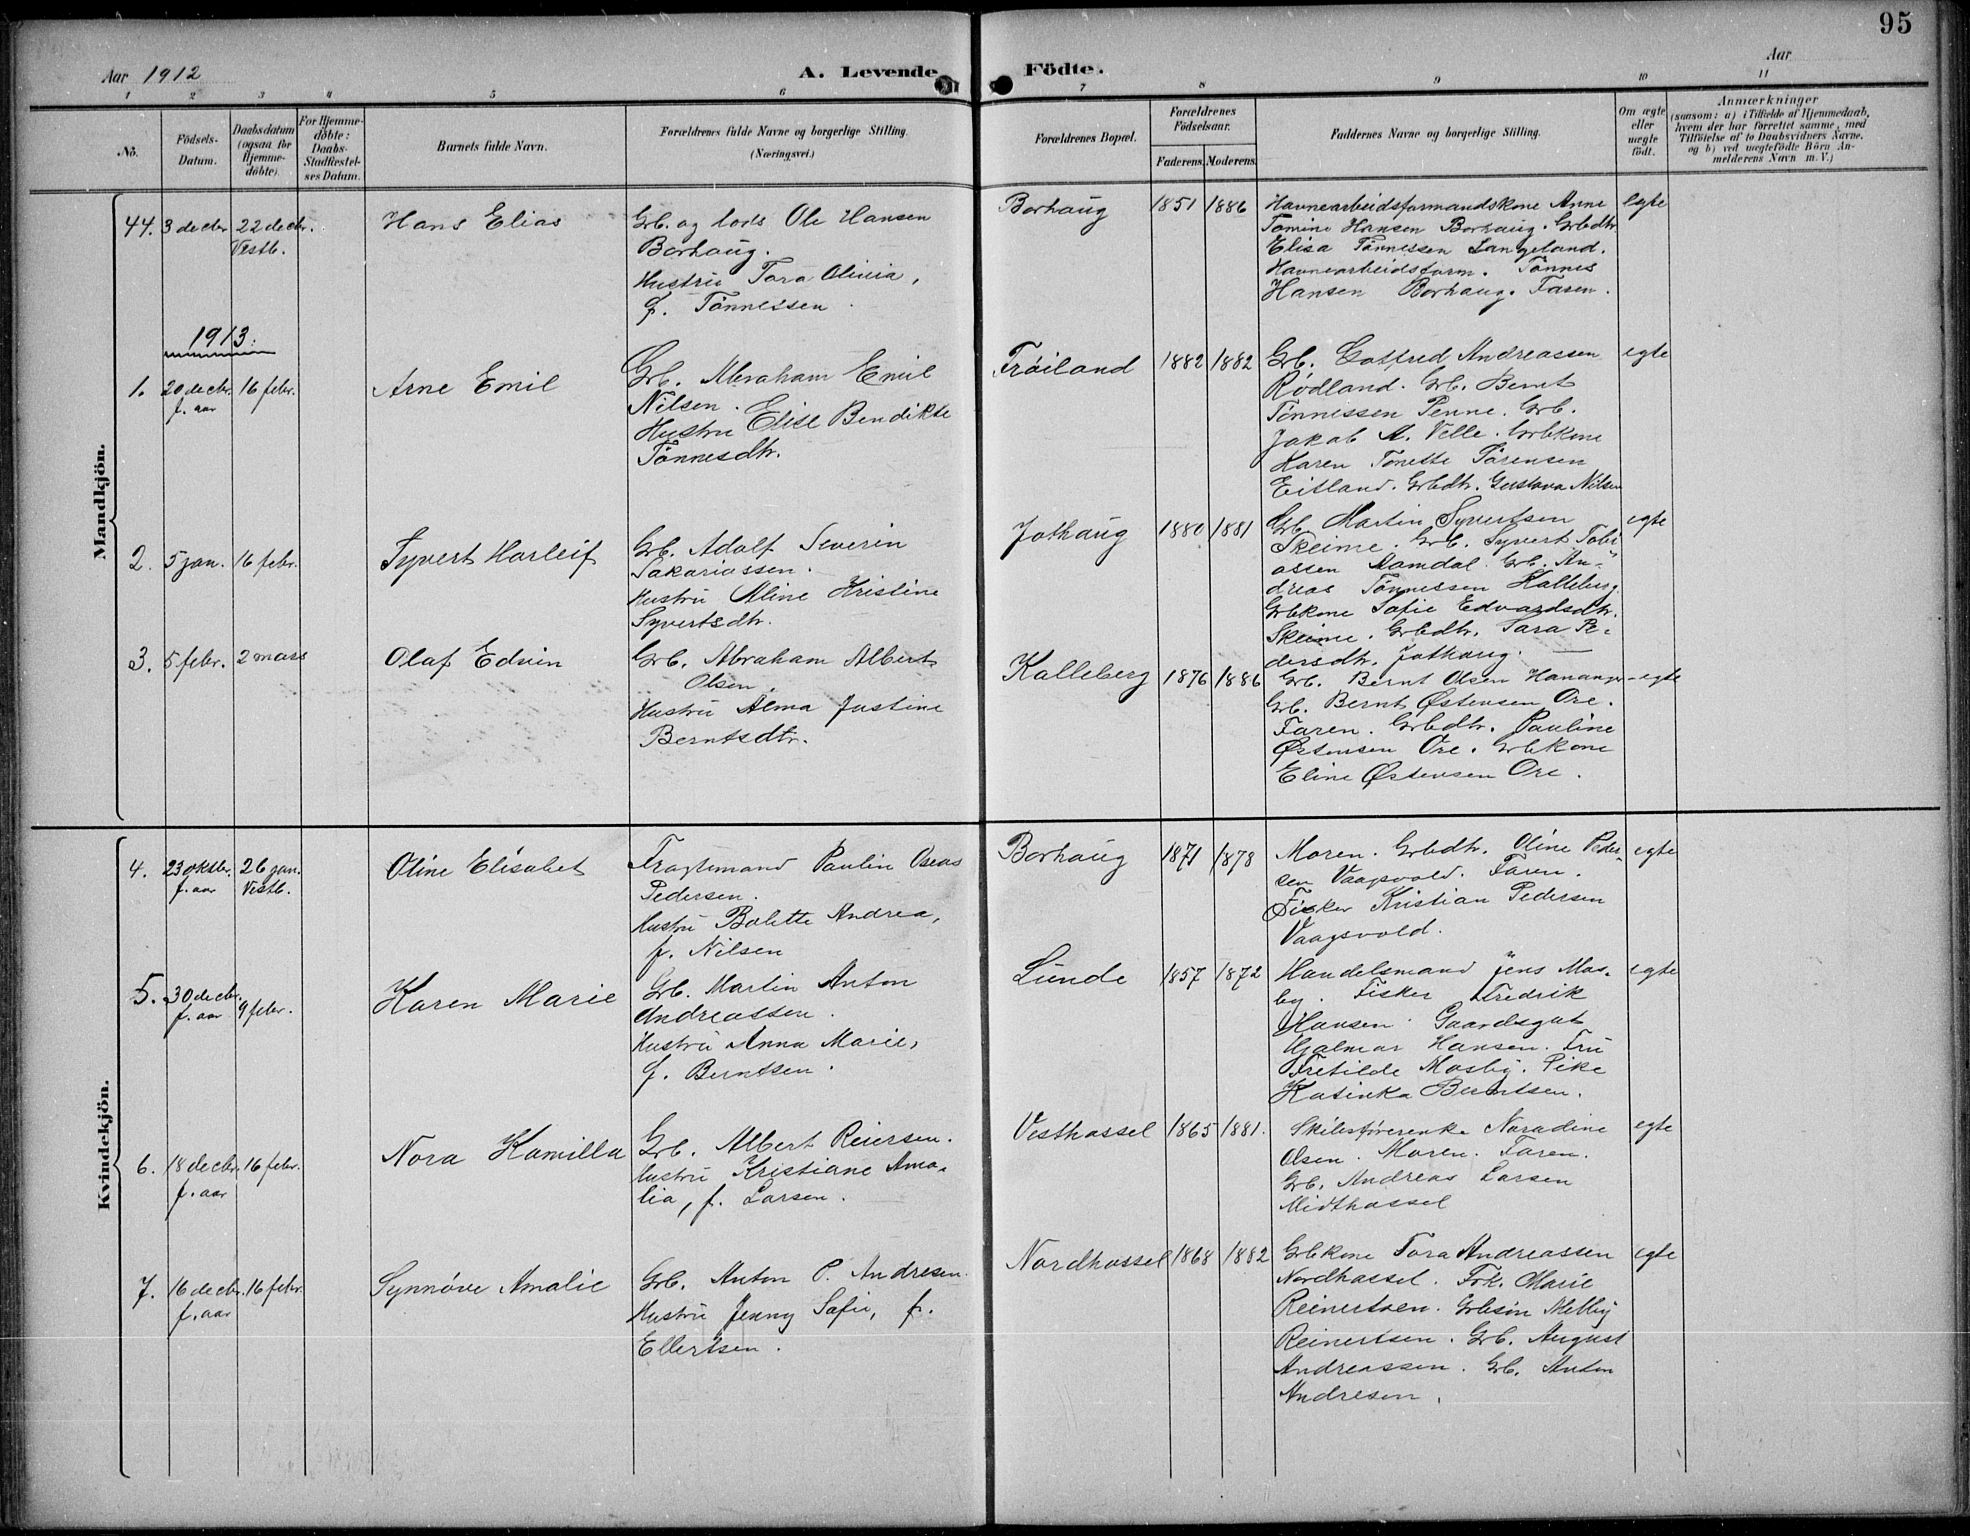 95
Aar 1912
A. Levende
Födte.
Aar
1 2 3 4 5 6 7 8 9 10 11
No.
Födsels-
Datum.
Daabsdatum
(ogsaa for
Hjemme-
döbte).
For Hjemme-
döbte:
Daabs-
Stadfæstel-
ses Datum.
Barnets fulde Navn.
Forældrenes fulde Navne og borgerlige Stilling.
(Næringsvei.)
Forældrenes Bopæl.
Forældrenes
Födselsaar.
Faderens. Moderens.
Faddernes Navne og borgerlige Stilling.
Om ægte
eller
uægte
født.
Anmærkninger
(saasom: a) i Tilfælde af Hjemmedaab,
hvem der har forrettet samme, med
Tilföielse af to Daabsvidners Navne,
og b) ved uægtefödte Börn An-
melderens Navn m. V.)
Mandkjön.
44. 3 decbr. 22 decbr.
Vestb.
Hans Elias
Grb. og lods Ole Hansen
Borhaug.
Hustru Tora Olivia,
f. Tönnessen.
Borhaug
1851 1886
Havnearbeidsformandskone Anne
Tomine Hansen Borhaug. Grbdtr.
Elisa Tönnessen Langeland.
Havnearbeidsform. Tönnes
Hansen Borhaug. Faren.
egte
1913.
1. 20 decbr. 16 febr.
f. aar
Arne Emil
Grb. Abraham Emil
Nilsen.
Hustru Elise Bendikte
Tönnesdtr.
Tröiland
1882 1882
Grb. Gotfred Andreassen
Rödland. Grb. Bernt
Tönnessen Penne. Grb.
Jakob A. Velle. Grbkone
Karen Tonette Sörensen
Eitland. Grbdtr. Gustava Nilsen
egte
2. 5 jan. 16 febr.
Syvert Harleif
Grb. Adolf Severin
Sakariassen.
Hustru Aline Kristine
Syvertsdtr.
Jothaug
1880 1881
Grb. Martin Syvertsen
Skeime. Grb. Syvert Tobi
assen Aamdal. Grb. An-
dreas Tönnessen Kalleberg
Grbkone Sofie Edvardsdtr.
Skeime. Grbdtr. Sara Pe-
dersdtr. Jothaug.
egte
3. 5 febr. 2 mars
Olaf Edvin
Grb. Abraham Albert
Olsen.
Hustru Alma Justine
Berntsdtr.
Kalleberg
1876 1886
Grb. Bernt Olsen Hananger
Grb. Bernt Østensen Ore.
Faren. Grbdtr. Pauline
Østensen Ore. Grbkone
Eline Østensen Ore.
egte
Kvindekjön.
4. 23 oktbr. 26 jan.
f. aar Vestb.
Oline Elisabet
Fragtemand Paulin Oseas
Pedersen.
Hustru Bolette Andrea,
f. Nilsen
Borhaug
1871 1878
Moren. Grbdtr. Oline Peder-
sen Vaagsvold. Faren.
Fisker Kristian Pedersen
Vaagsvold.
egte
5. 30 decbr. 9 febr.
f. aar
Karen Marie
Grb. Martin Anton
Andreassen.
Hustru Anna Marie,
f. Berntsen.
Lunde
1857 1872
Handelsmand Jens Mos-
by. Fisker Fredrik
Hansen. Gaardsgut
Hjalmar Hansen. Fru
Tretilde Mosby. Pike
Katinka Berntsen.
egte
6. 18 decbr. 16 febr.
f. aar
Nora Kamilla
Grb. Albert Reiersen.
Hustru Kristiane Ama-
lia, f. Larsen.
Vesthassel
1865 1881.
Skibsförerenke Noradine
Olsen. Moren. Faren.
Grb. Andreas Larsen
Midthassel
egte
7. 16 decbr. 16 febr.
f. aar
Synnöve Amalie
Grb. Anton P. Andresen.
Hustru Jenny Sofie, f.
Ellertsen.
Nordhassel
1868 1882
Grbkone Tora Andreassen
Nordhassel. Frk. Marie
Reinertsen. Grbsön Melby
Reinertsen. Grb. August
Andreassen. Grb. Anton
Andresen.
egte